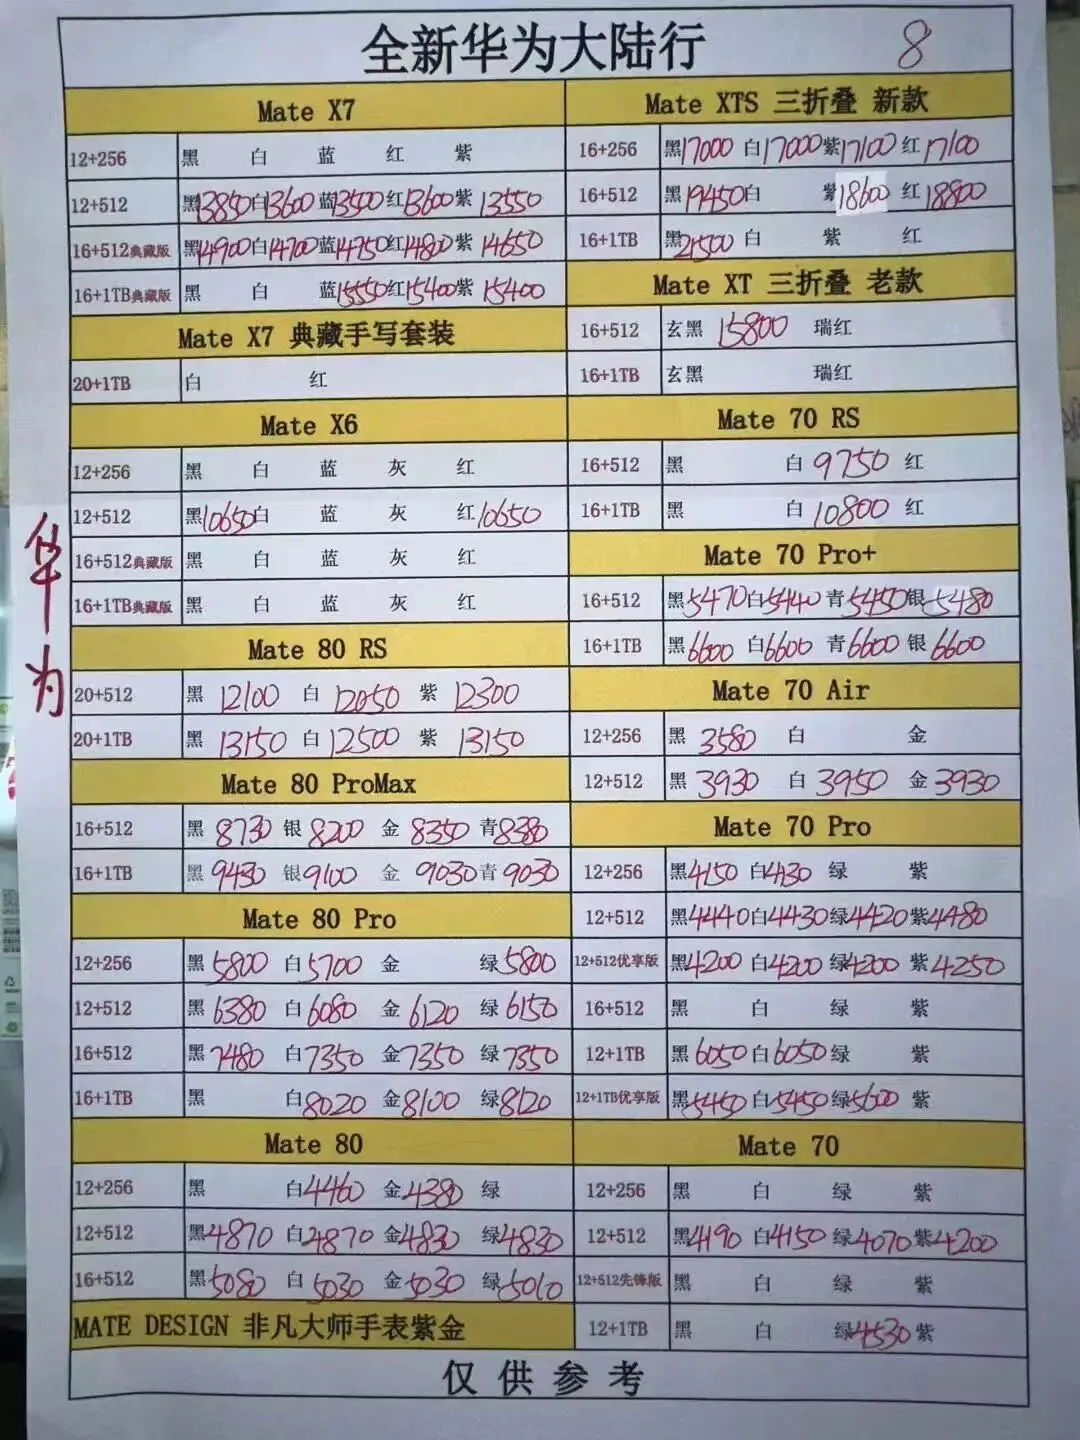 全新华为大陆行 8
华为
Mate X7
12+256 黑 白 蓝 红 紫
12+512 黑13850 白13600 蓝13500 红13600 紫 13550
16+512典藏版 黑14900 白14700 蓝14750 红14800 紫 14650
16+1TB典藏版 黑 白 蓝15550 红15400 紫 15400
Mate X7 典藏手写套装
20+1TB 白 红
Mate X6
12+256 黑 白 蓝 灰 红
12+512 黑10650 白 蓝 灰 红10650
16+512典藏版 黑 白 蓝 灰 红
16+1TB典藏版 黑 白 蓝 灰 红
Mate 80 RS
20+512 黑 12100 白 12050 紫 12300
20+1TB 黑 13150 白 12500 紫 13150
Mate 80 ProMax
16+512 黑 8730 银 8200 金 8350 青8380
16+1TB 黑 9430 银9100 金 9030 青 9030
Mate 80 Pro
12+256 黑 5800 白5700 金 绿5800
12+512 黑 6380 白6080 金 6120 绿 6150
16+512 黑 7480 白7350 金7350 绿7350
16+1TB 黑 白8020 金8100 绿8120
Mate 80
12+256 黑 白4460 金4380 绿
12+512 黑4870 白4870 金4830 绿4830
16+512 黑5080 白 5030 金5030 绿5010
MATE DESIGN 非凡大师手表紫金
Mate XTS 三折叠 新款
16+256 黑17000 白17000 紫17100 红17100
16+512 黑19450 白 紫18600 红18800
16+1TB 黑21500 白 紫 红
Mate XT 三折叠 老款
16+512 玄黑 15800 瑞红
16+1TB 玄黑 瑞红
Mate 70 RS
16+512 黑 白 9750 红
16+1TB 黑 白 10800 红
Mate 70 Pro+
16+512 黑5470 白5440 青5450 银5480
16+1TB 黑6600 白6600 青6600 银6600
Mate 70 Air
12+256 黑 3580 白 金
12+512 黑 3930 白 3950 金 3930
Mate 70 Pro
12+256 黑4150 白4130 绿 紫
12+512 黑4440 白4430 绿4420 紫4480
12+512优享版 黑4200 白4200 绿4200 紫4250
16+512 黑 白 绿 紫
12+1TB 黑6050 白6050 绿 紫
12+1TB优享版 黑5450 白5450 绿5600 紫
Mate 70
12+256 黑 白 绿 紫
12+512 黑4190 白4150 绿4070 紫4200
12+512先锋版 黑 白 绿 紫
12+1TB 黑 白 绿4530 紫
仅供参考